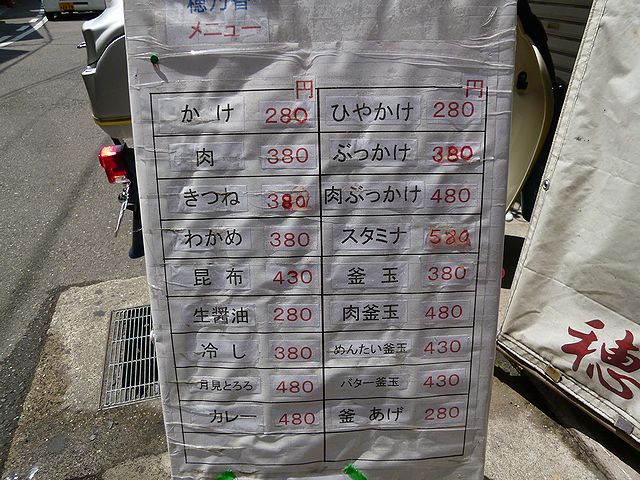 穂乃香
メニュー
円 円
かけ 280 ひやかけ 280
肉 380 ぶっかけ 380
きつね 380 肉ぶっかけ 480
わかめ 380 スタミナ 580
昆布 430 釜玉 380
生醤油 280 肉釜玉 480
冷し 380 めんたい釜玉 430
月見とろろ 480 バター釜玉 430
カレー 480 釜あげ 280
穂